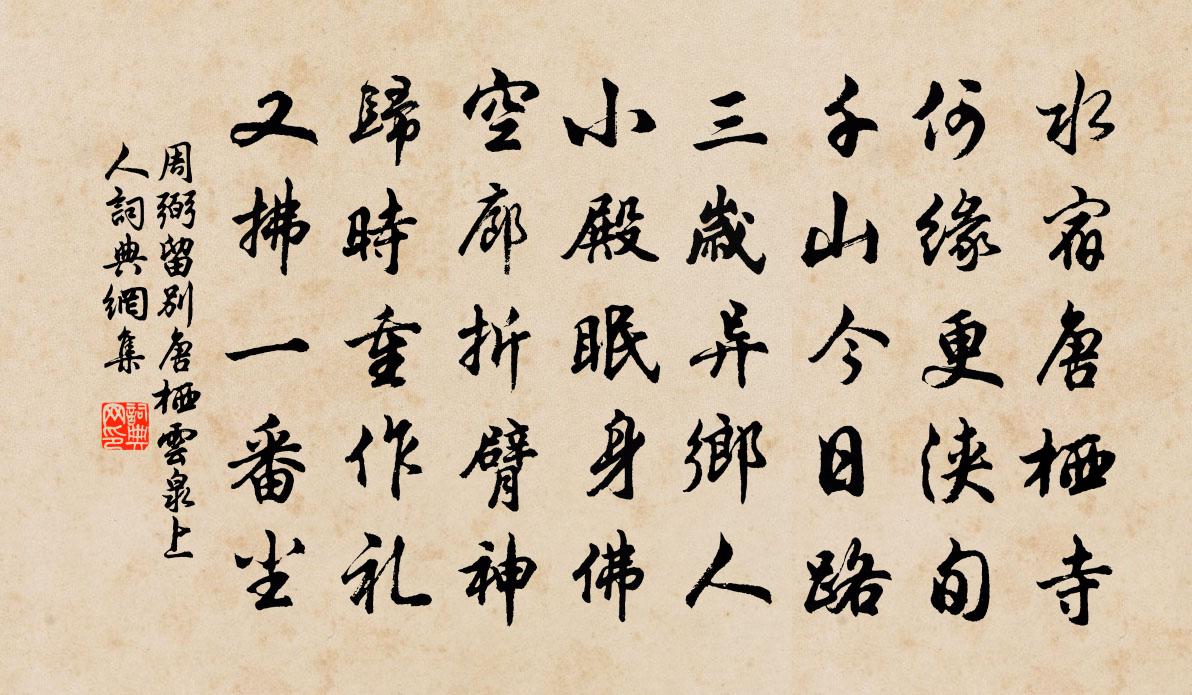 水宿唐栖寺
何缘更浹旬
千山今日路
三歲异鄉人
小殿眠身佛
空廊折臂神
歸時重作礼
又拂一番尘
周弼留別唐栖雲泉上
人詞典網集
詞典网印